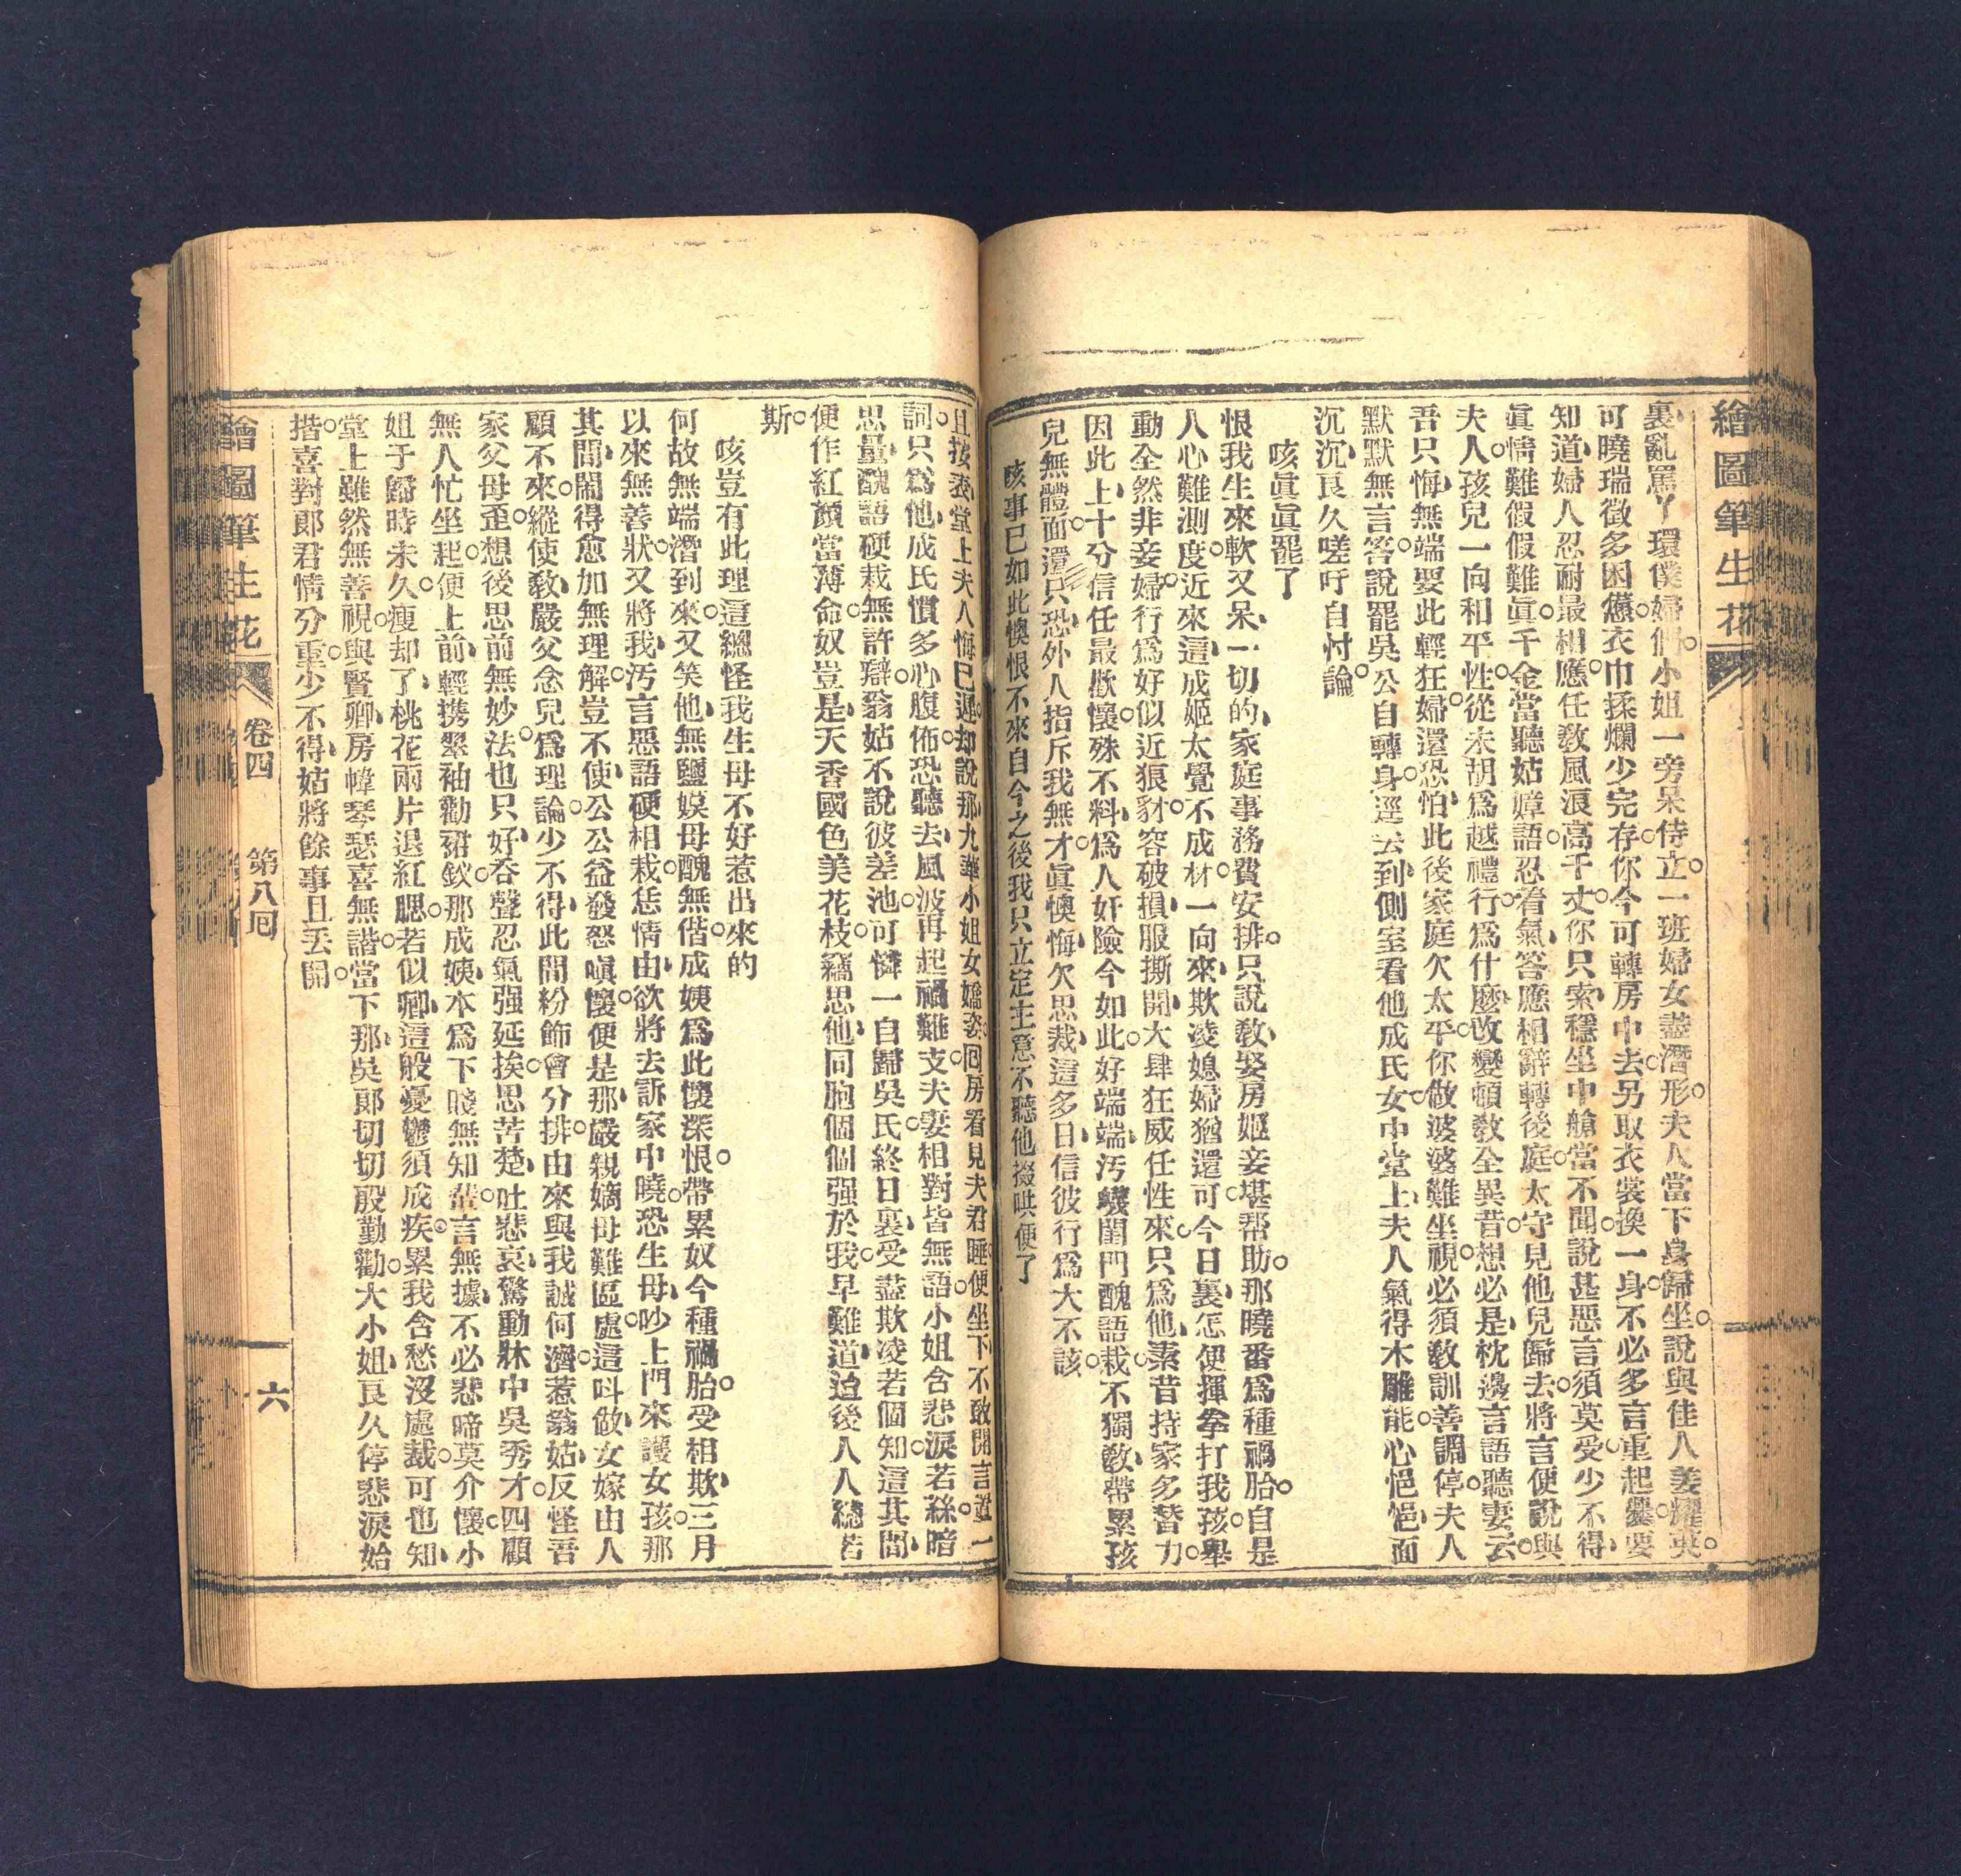 繪圖筆生花
裏亂罵丫環僕婦們小姐一旁呆侍立一班婦女盡潛形夫人當下身歸坐說與佳人姜耀英
可曉瑞徵多困憊衣巾揉爛少完存你今可轉房中去另取衣裳換一身不必多言重起釁要
知道婦人忍耐最相應任敎風浪高千丈你只索穩坐中艙當不聞說甚惡言須莫受少不得
眞情難假假難眞千金當聽姑嫜語忍着氣答應相辭轉後庭太守見他兒歸去將言便說與
夫人孩兒一向和平性從未胡爲越禮行爲什麽改變頓敎全異昔想必是枕邊言語聽妻云
吾只悔無端娶此輕狂婦還恐怕此後家庭欠太平你做婆婆難坐視必須敎訓善調停夫人
默默無言答說罷吳公自轉身逕去到側室看他成氏女中堂上夫人氣得木雕能心悒悒面
沉沉良久嗟吁自忖論
咳眞眞罷了
恨我生來軟又呆一切的家庭事務費安排只說敎娶房姬妾堪帮助那曉番爲種禍胎自是
人心難測度近來這成姬太覺不成材一向來欺凌媳婦猶還可今日裏怎便揮拳打我孩舉
動全然非妾婦行爲好似近狼豺容破損服撕開大肆狂威任性來只爲他素昔持家多替力
因此上十分信任最歡懷殊不料爲人奸險今如此好端端污衊閨門醜語栽不獨敎帶累孩
兒無體面還只恐外人指斥我無才眞懊悔欠思裁這多日信彼行爲大不該
咳事已如此懊恨不來自今之後我只立定主意不聽他掇哄便了
且按表堂上夫人悔已遲却說那九華小姐女嬌姿回房看見夫君睡便坐下不敢開言置一
詞只爲他成氏慣多心腹佈恐聽去風波再起禍難支夫妻相對皆無語小姐含悲淚若絲暗
忠量醜語硬栽無許辯翁姑不說彼差池可憐一自歸吳氏終日裏受盡欺凌若個知這其間
便作紅顏當薄命奴豈是天香國色美花枝竊思他同胞個個强於我早難道迨後人人總若
斯
咳豈有此理這總怪我生母不好惹出來的
何故無端潛到來又笑他無鹽嫫母醜無偕成姨爲此懷深恨帶累奴今種禍胎受相欺三月
以來無善狀又將我汚言惡語硬相栽恁情由欲將去訴家中曉恐生母吵上門來護女孩那
其間鬧得愈加無理解豈不使公公益發怒嗔懷便是那嚴親嫡母難區處這呌做女嫁由人
顧不來縱使敎嚴父念兒爲理論少不得此間紛飾會分排由來與我誠何濟惹翁姑反怪吾
家父母歪想後思前無妙法也只好吞聲忍氣强延挨思苦楚吐悲哀驚動牀中吳秀才四顧
無人忙坐起便上前輕携翠袖勸裙釵那成姨本爲下賤無知輩言無據不必悲啼莫介懷小
姐于歸時未久瘦却了桃花兩片退紅腮若似卿這般憂鬱須成疾累我含愁沒處裁可也知
堂上雖然無善視與賢卿房幃琴瑟喜無諧當下那吳郞切切殷勤勸大小姐良久停悲淚始
揩喜對郞君情分重少不得姑將餘事且丟開
繪圖筆生花 卷四 第八回 六